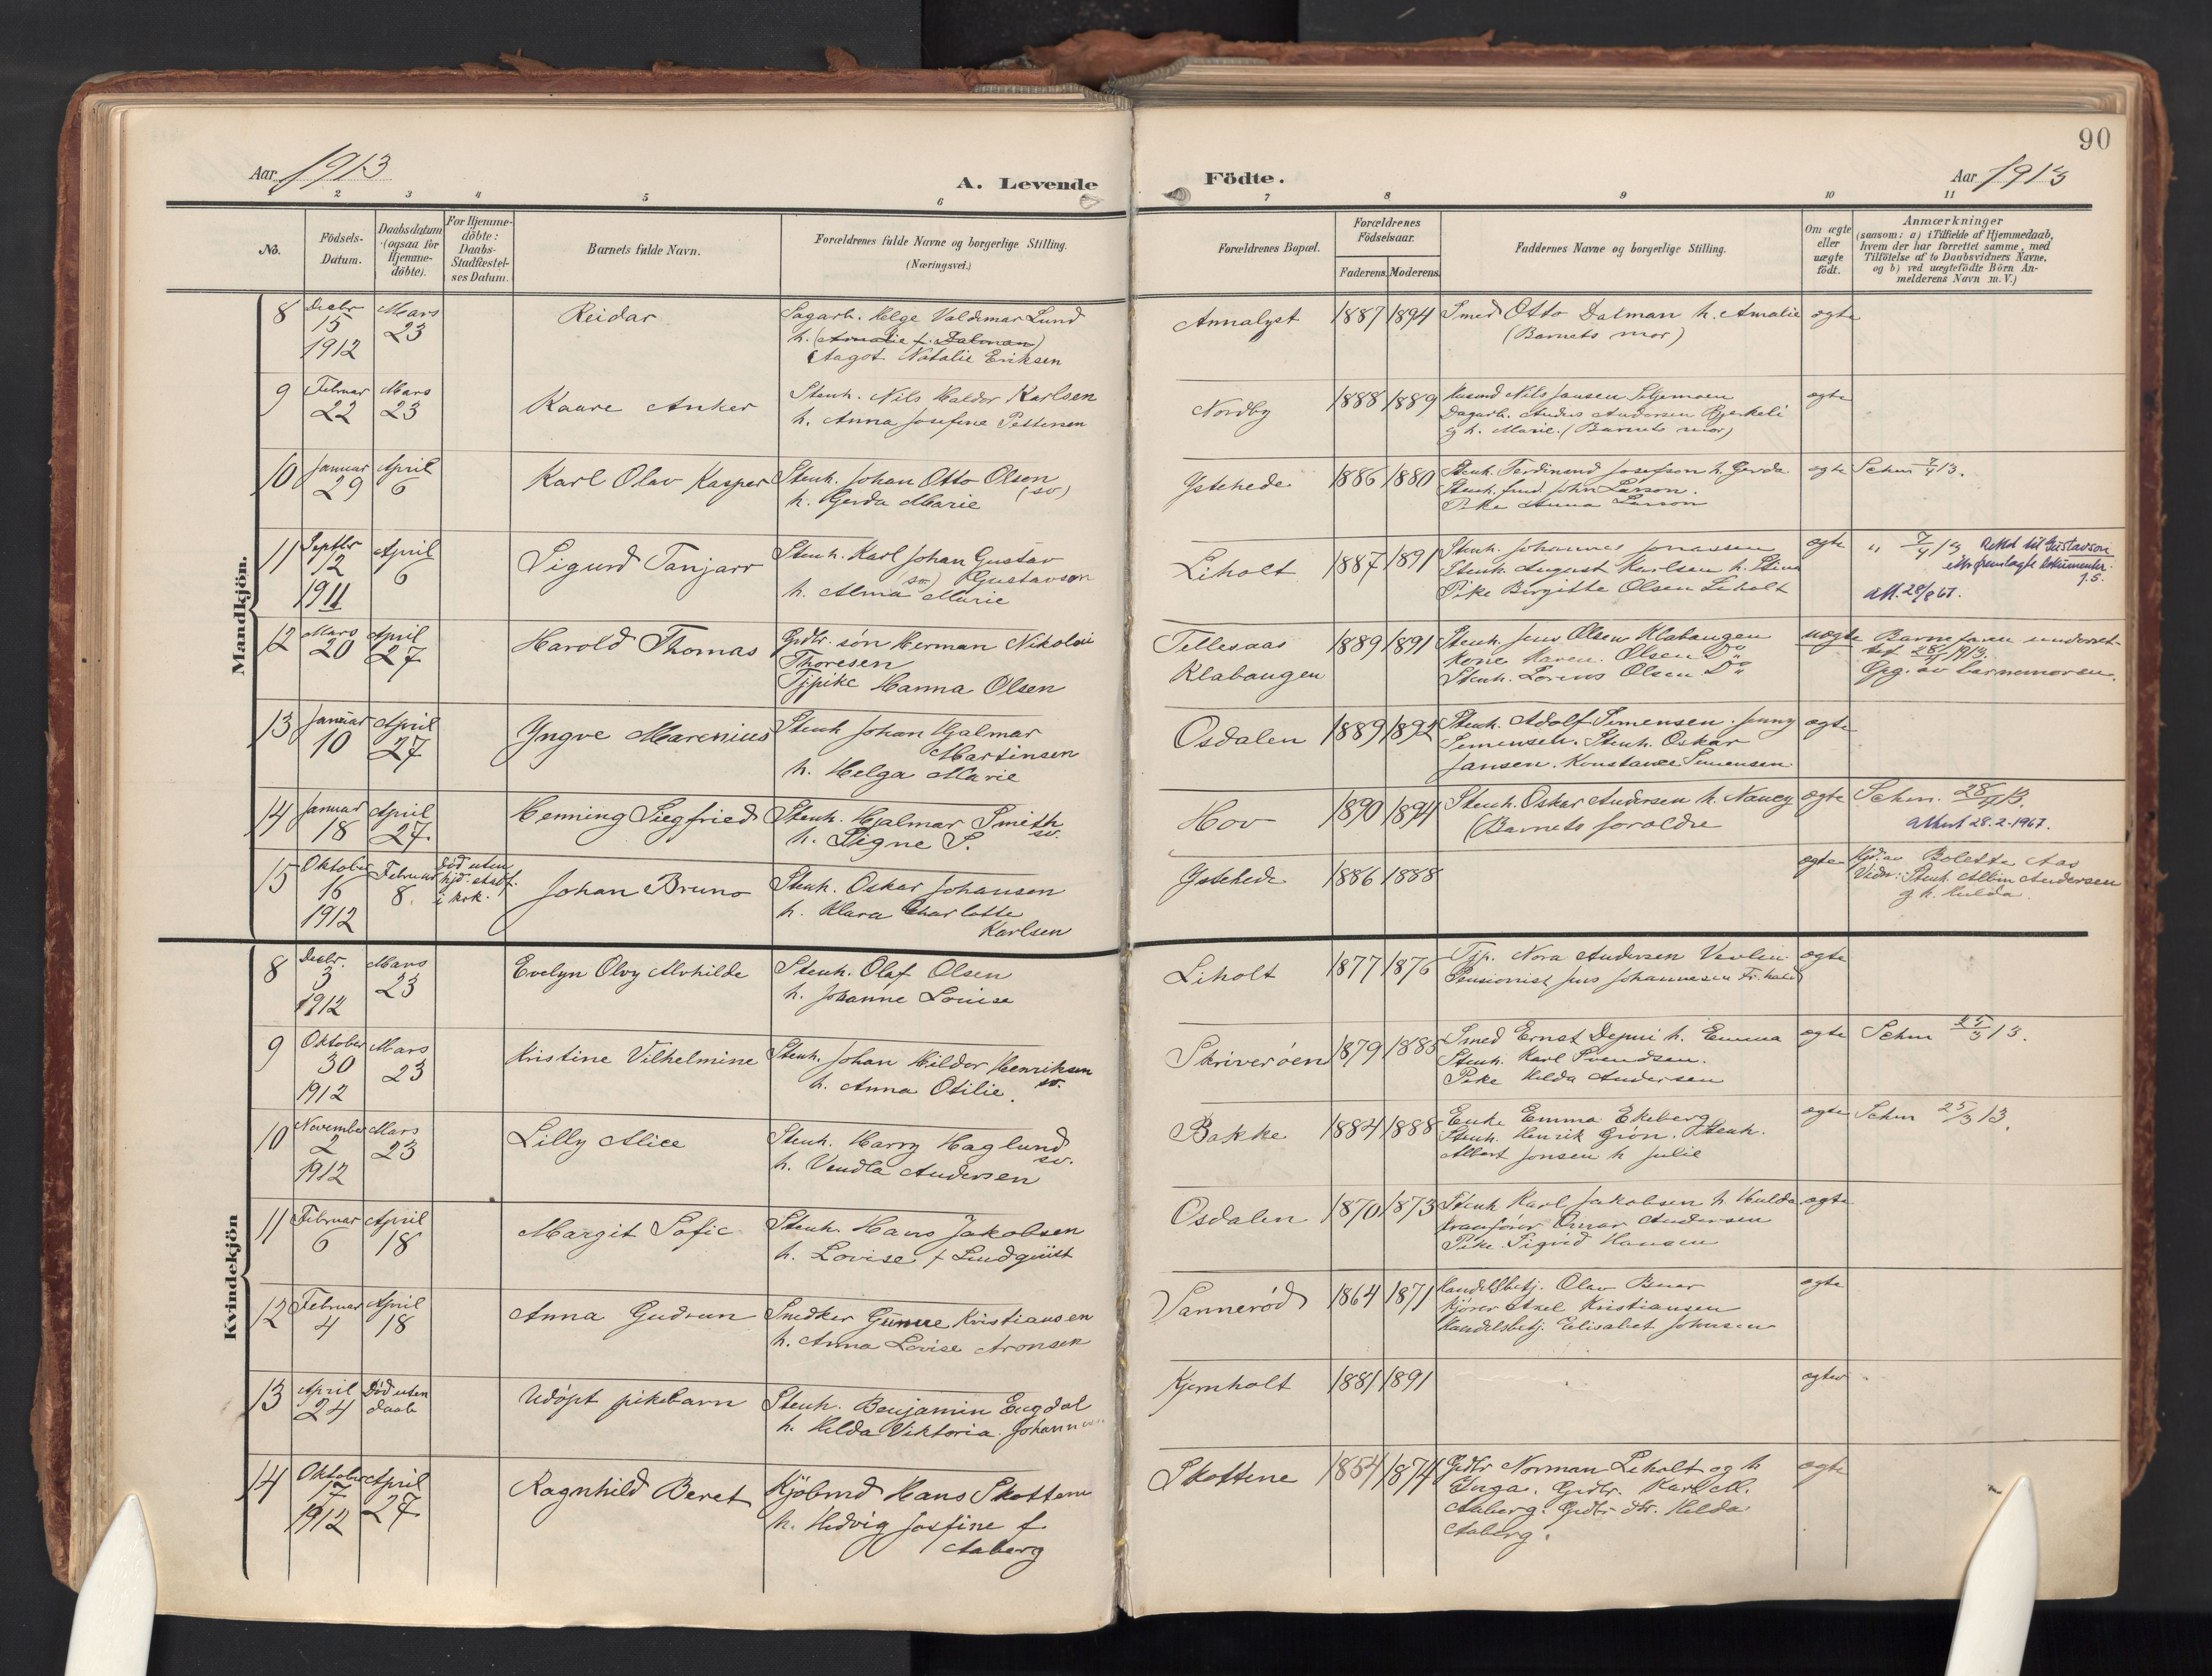 90
Aar 1913
A. Levende
Födte.
Aar 1913
1 2 3 4 5 6 7 8 9 10 11
No.
Födsels-
Datum.
Daabsdatum
(ogsaa for
Hjemme-
döbte).
For Hjemme-
döbte:
Daabs-
Stadfæstel-
ses Datum.
Barnets fulde Navn.
Forældrenes fulde Navne og borgerlige Stilling.
(Næringsvei.)
Forældrenes Bopæl.
Forældrenes
Födselsaar.
Faderens. Moderens.
Faddernes Navne og borgerlige Stilling.
Om ægte
eller
uægte
födt.
Anmærkninger
(saasom: a) i Tilfælde af Hjemmedaab,
hvem der har forrettet samme, med
Tilföielse af to Daabsvidners Navne,
og b) ved uægtefödte Börn An-
melderens Navn m.V.)
Mandkjön.
8
Decbr
15
1912
Mars
23
Reidar
Sagarb. Helge Valdemar Lund
h. (Amalie f. Dalman)
Aagot Natalie Eriksen
Annalyst
1887 1894
Smed Otto Dalman h. Amalie
(Barnets mor)
ægte
9
Februar
22
Mars
23
Kaare Anker
Stenh. Nils Haldor Karlsen
h. Anna Josefine Pettersen
Nordby
1888 1889
Husmd Nils Jansen
Dagarb. Anders Andersen Bjerkeli
g h. Marie. (Barnets mor)
ægte
10
Januar
29
April
6
Karl Olav Kasper
Stenh. Johan Otto Olson
(sv)
h. Gerda Marie
Ystehede
1886 1880
Stenh. Ferdinand Josefson h. Gerda
Stenh. John Larson.
Pike Anna Larson
ægte
Schm 7/4 13.
11
Septbr
12
1911
April
6
Sigurd Tanjarr
Stenh. Karl Johan Gustav
sv) Gustavson
h. Alma Marie
Liholt
1887 1891
Stenh. Johannes Jonassen
Stenh. August Karlsen h. Stina
Pike Birgitte Olsen Liholt
ægte
" 7/4 13 Rettet til Gustavson
efter fremlagte dokumenter.
att. 28/8 67.
12
Mars
20
April
27
Harold Thomas
Grdbr. søn Herman Nikolai
Thoresen
Tjpike Hanna Olsen
Tellesaas
Klabaugen
1889 1891
Stenh. Jens Olsen Klabaugen
Kone Karen Olsen Do
Stenh. Lorens Olsen Do
uægte
Barnefaren underret-
tet 28/4 1913.
Opg. av barnemoren.
13
Januar
10
April
27
Yngve Marenius
Stenh Johan Hjalmar
Martinsen
h. Helga Marie
Osdalen
1889 1892
Stenh. Adolf Simensen. Jenny
Simensen. Stenh. Oskar
Jansen. Konstance Simensen
ægte
14
Januar
18
April
27.
Henning Siegfried
Stenh. Hjalmar Smith
sv.
h. Signe S.
Hov
1890 1894
Stenh. Oskar Andersen h. Nancy
(Barnets foræld­re
ægte
Schm. 28/4 13.
Attest 28.2.1967.
15
Oktober
16
1912
Februar
8.
død uten
hjd. stadf.
i kirk.
Johan Bruno
Stenh. Oskar Johansen
h. Klara Charlotte
Karlsen
Ystehede
1886 1888
ægte
Hjd. av Bolette Aas
Vidn: Stenh. Albin Andersen
g h. Hulda.
Kvindekjön
8
Decbr.
3
1912
Mars
23
Evelyn Olvy Alvhilde
Stenh. Olaf Olsen
h. Johanne Louise
Liholt
1877 1876
Tjp. Nora Andersen
Pensionist Jens Johannesen Fr.hald
ægte
9
Oktober
30
1912
Mars
23
Kristine Vilhelmine
Stenh. Johan Hildor Henriksen
sv.
h. Anna Otilie.
Skriverøen
1879 1885
Smed Ernst h. Emma
Stenh. Karl Svendsen.
Pike Hilda Andersen
ægte
Schm 25/3 13.
10
November
2
1912
Mars
23
Lilly Alice
Stenh. Harry Haglund
sv.
h. Vendla Andersen
Bakke
1884 1888
Enke Emma Ekeberg
Stenh. Henrik Grön. Stenh.
Albert Jonsen h Julie
ægte
Schm 25/3 13.
11
Februar
6
April
18
Margit Sofie
Stenh. Hans Jakobsen
h. Lovise f Lindquist
Osdalen
1870 1873
Stenh Karl Jakobsen h Hulda
Kranfører Einar Andersen
Pike Sigrid Hansen
ægte
12
Februar
4
April
18
Anna Gudrun
Snedker Gunne Kristiansen
h. Anna Lovise Aronsen
Sannerød
1864 1871
Handelsbetj. Olav Buer
Kjører Axel Kristiansen
Handelsbetj. Elisabet Johnsen
ægte
13
April
24
Død uten
daab
Udöpt pikebarn
Stenh. Benjamin Engdal
h. Hilda Viktoria
Kjernholt
1881 1891
ægte
14
Oktober
17
1912
April
27
Ragnhild Beret
Kjöbmd Hans Skottene
h. Hedvig Josfine f
Aaberg
Skottene
1854 1874
Grdbr Norman Liholt og h
Inga. Grdbr. Karl M.
Aaberg. Grdbr dtr. Hilda
Aaberg.
ægte